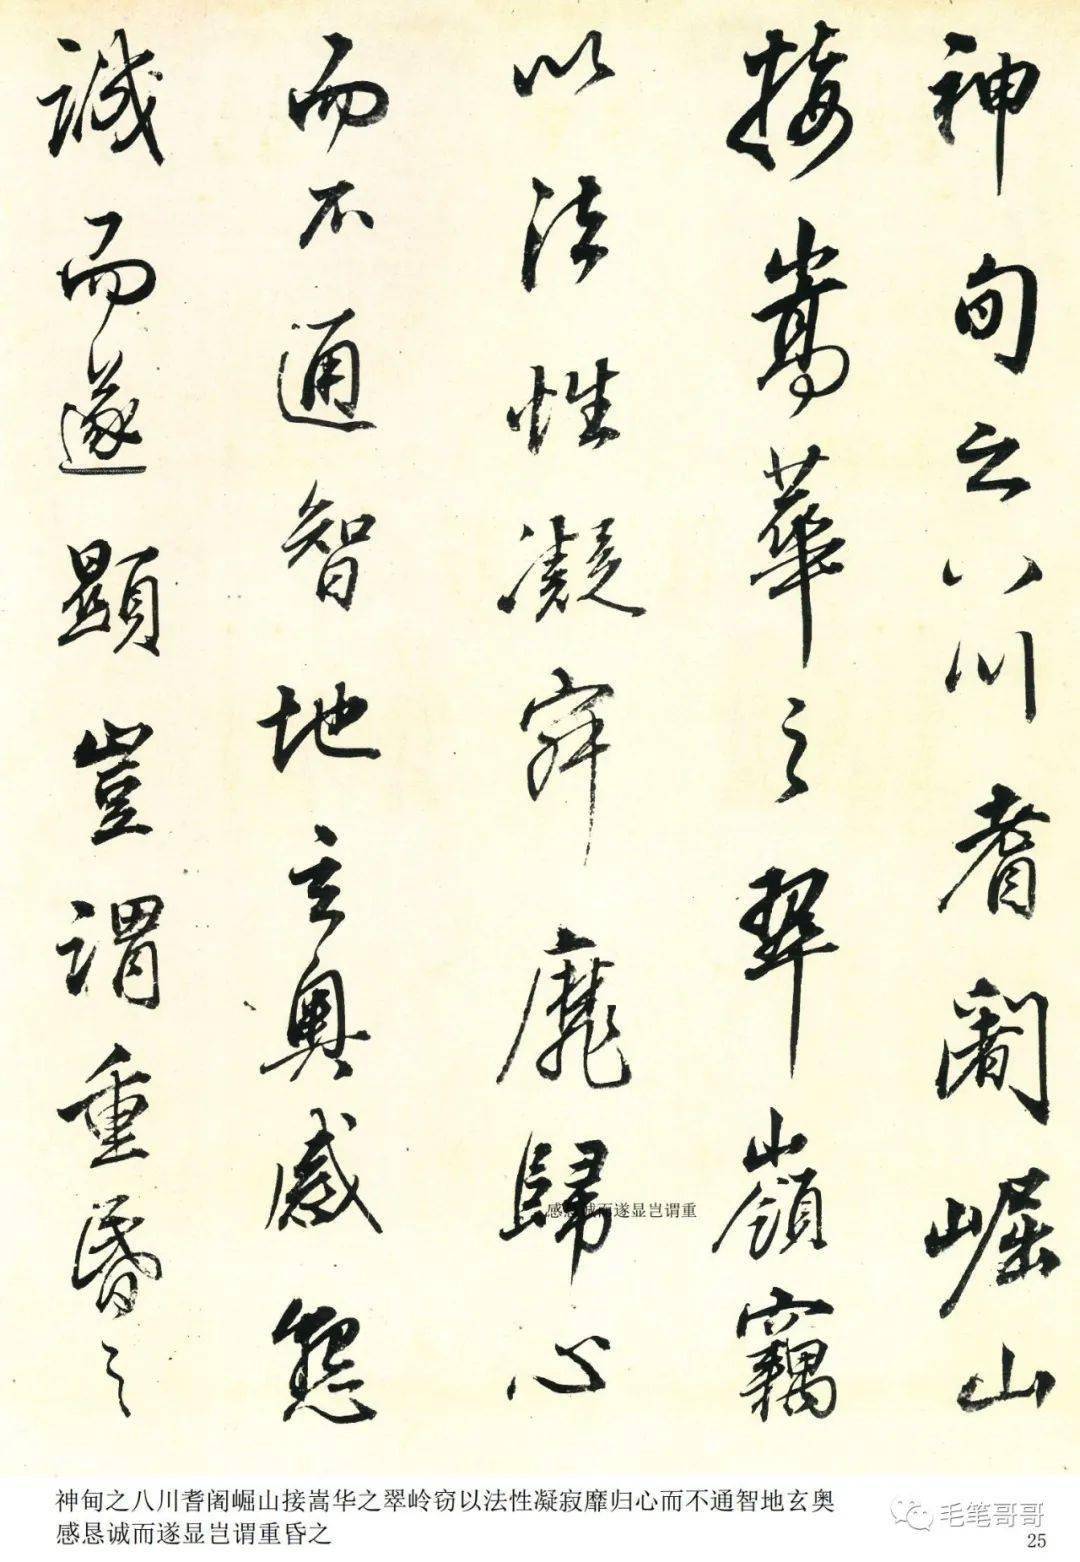 神甸之八川耆闍崛山
接嵩華之翠嶺竊
以法性凝寂靡歸心
而不通智地玄奧感懇
誠而遂顯豈謂重昏之
感恳诚而遂显岂谓重
神甸之八川耆阇崛山接嵩华之翠岭窃以法性凝寂靡归心而不通智地玄奥
感恳诚而遂显岂谓重昏之
毛笔哥哥
25